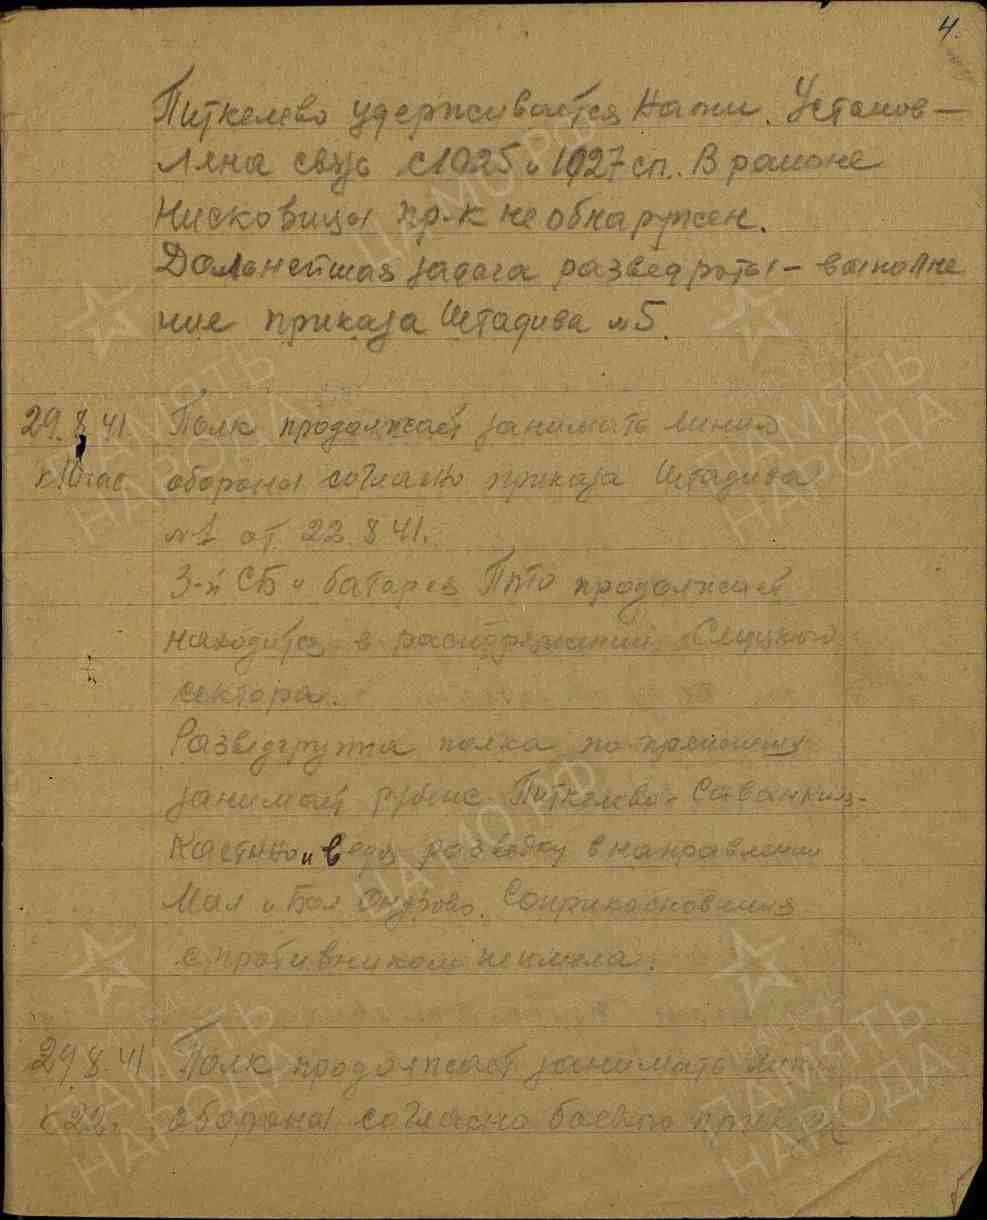 4.
Питкелево удерживается нами. Установ-
лена связь с 1025 и 1027 сп. В районе
Нисковицы пр-к не обнаружен.
Дальнейшая задача разведроты - выполне
ние приказа Штадива №5.
29.8.41. Полк продолжает занимать линию
к 10 час обороны согласно приказа Штадива
№1 от 22.8.41.
3-й СБ и батарея ПТО продолжает
находится в распоряжении Слуцкого
сектора.
Разведгруппа полка по прежнему
занимает рубеж Питкелево -
и ведя разведку в направлении
Мал и Бол Ондрово. Соприкосновения
с противником не имела.
29.8.41 Полк продолжает занимать линию
к 22 обороны согласно боевого приказа
ПАМЯТЬ НАРОДА
ЦАМО РФ